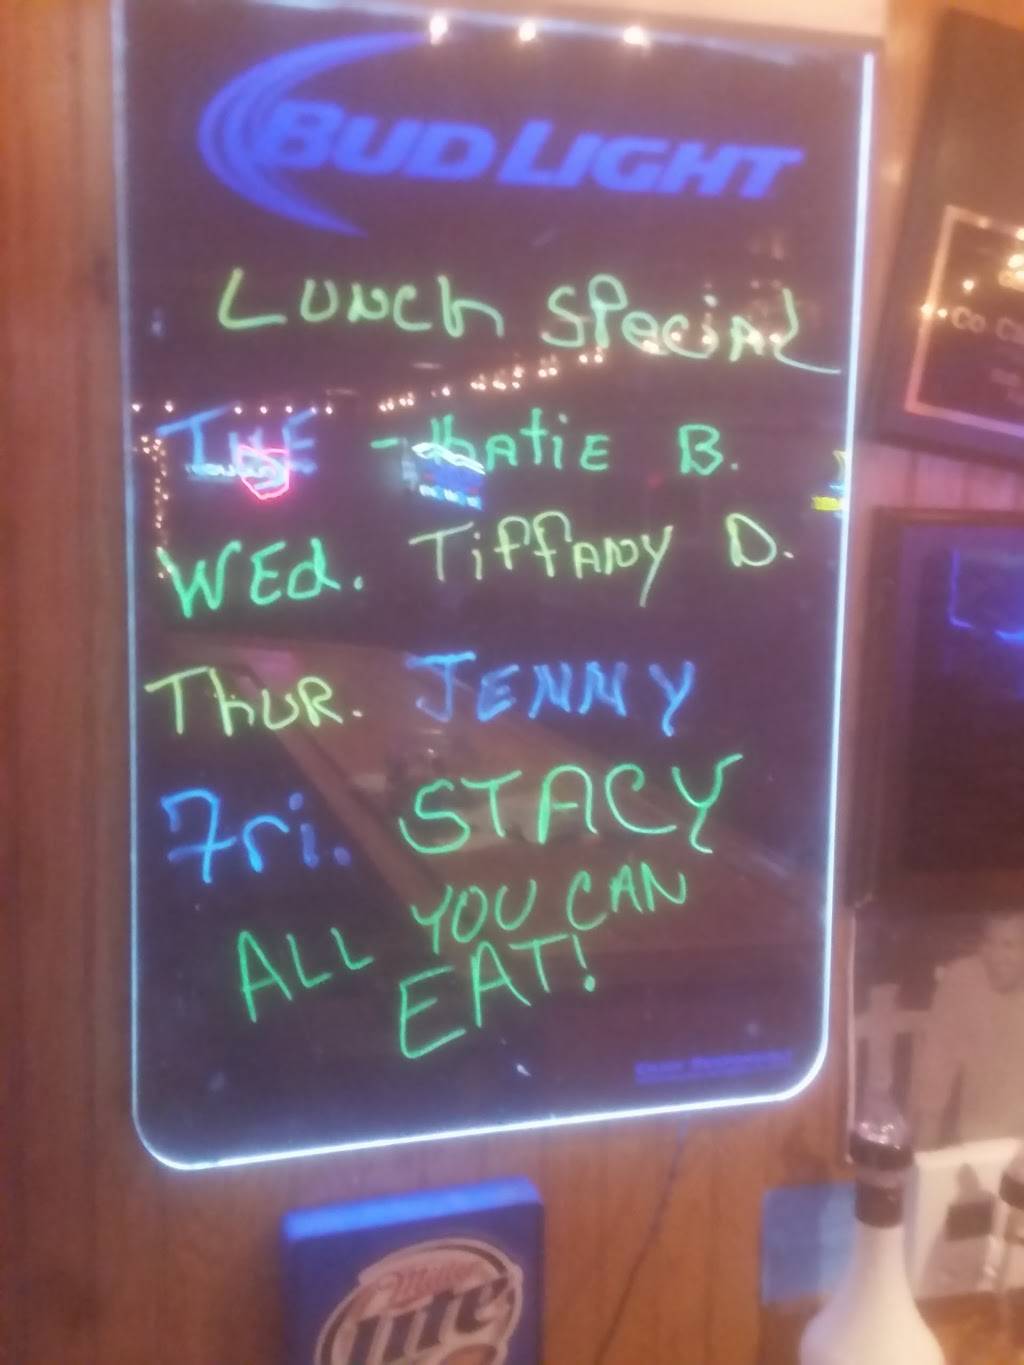 BUD LIGHT
LUNCH SPecIAL
TUE - KATiE B.
WEd. TiffANY D.
ThUR. JENNY
Fri. STACY
ALL YOU CAN
EAT!
Co
Miller
Lite